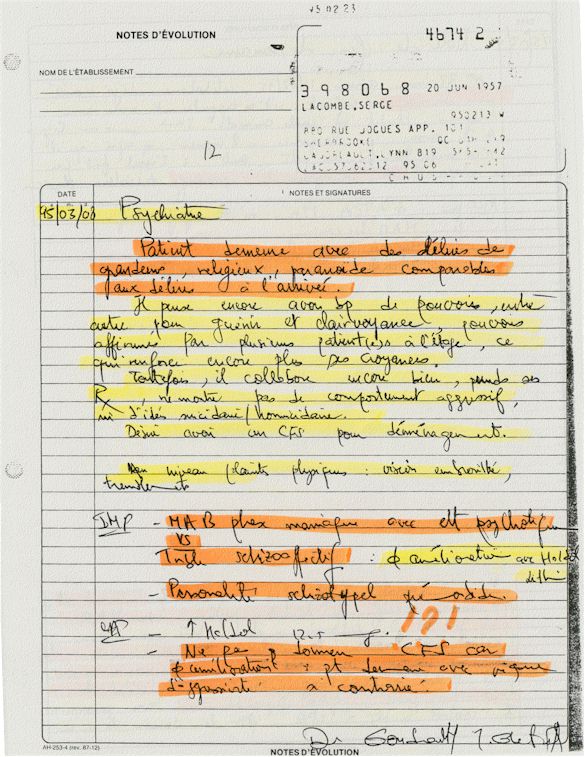 95 02 23
NOTES D'ÉVOLUTION
4674 2
NOM DE L'ÉTABLISSEMENT
398068 20 JUN 1957
LACOMBE, SERGE
950213 W
880 RUE JOGUES APP. 101
SHERBROOKE
LYNN 819
95 06
12
DATE
NOTES ET SIGNATURES
95/03/0 Psychiatrie
Patient demeure avec des délires de
grandeurs, religieux, paranoïde comparables
aux délires à l'arrivée.
Il pense encore avoir bp de pouvoirs, entre
autre pour guérir et clairvoyance, pouvoirs
affirmés par plusieurs patient(e)s à l'étage, ce
qui renforce encore plus ses croyances.
Toutefois, il collabore encore bien, prends ses
Rx, ne montre pas de comportement aggressif,
ni d'idés suicidaire/homicidaire.
Désire avoir un CFS pour déménagement.
Au niveau plaints physiques : vision embrouillé,
tremblements
IMP - MAB phase maniaque avec élt psychotique
vs
Trble schizoaffectif : φ amélioration avec Haldol
- Personalité schizotypel
???
- ↑ Haldol 12.5
- Ne pas donner CFS car
φ amélioration + pt demeure avec risque
d'
Dr
AH-253-4 (rev. 87-12)
NOTES D'ÉVOLUTION